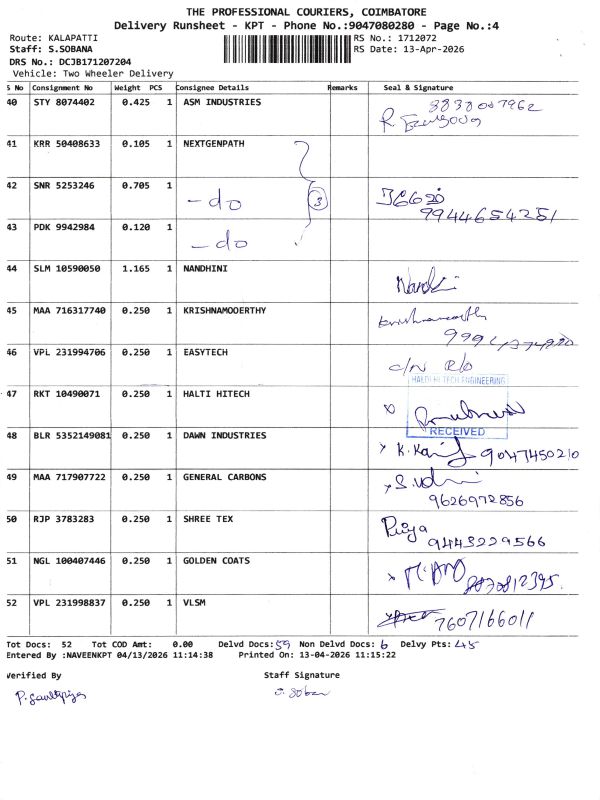 THE PROFESSIONAL COURIERS, COIMBATORE
Delivery Runsheet - KPT - Phone No.:9047080280 - Page No.:4
Route: KALAPATTI RS No.: 1712072
Staff: S.SOBANA RS Date: 13-Apr-2026
DRS No.: DCJB171207204
Vehicle: Two Wheeler Delivery
S No Consignment No Weight PCS Consignee Details Remarks Seal & Signature
40 STY 8074402 0.425 1 ASM INDUSTRIES
41 KRR 50408633 0.105 1 NEXTGENPATH
42 SNR 5253246 0.705 1 -do 3
9944654251
43 PDK 9942984 0.120 1 -do
44 SLM 10590050 1.165 1 NANDHINI
45 MAA 716317740 0.250 1 KRISHNAMOOERTHY Krishnamoorthy
46 VPL 231994706 0.250 1 EASYTECH c/n R/o
HALDI HI TECH ENGINEERING
47 RKT 10490071 0.250 1 HALTI HITECH
RECEIVED
48 BLR 5352149081 0.250 1 DAWN INDUSTRIES 9047450210
49 MAA 717907722 0.250 1 GENERAL CARBONS
9626972856
50 RJP 3783283 0.250 1 SHREE TEX Priya
9443229566
51 NGL 100407446 0.250 1 GOLDEN COATS
52 VPL 231998837 0.250 1 VLSM 7607166011
Tot Docs: 52 Tot COD Amt: 0.00 Delvd Docs: 59 Non Delvd Docs: 6 Delvy Pts: 45
Entered By :NAVEENKPT 04/13/2026 11:14:38 Printed On: 13-04-2026 11:15:22
Verified By Staff Signature